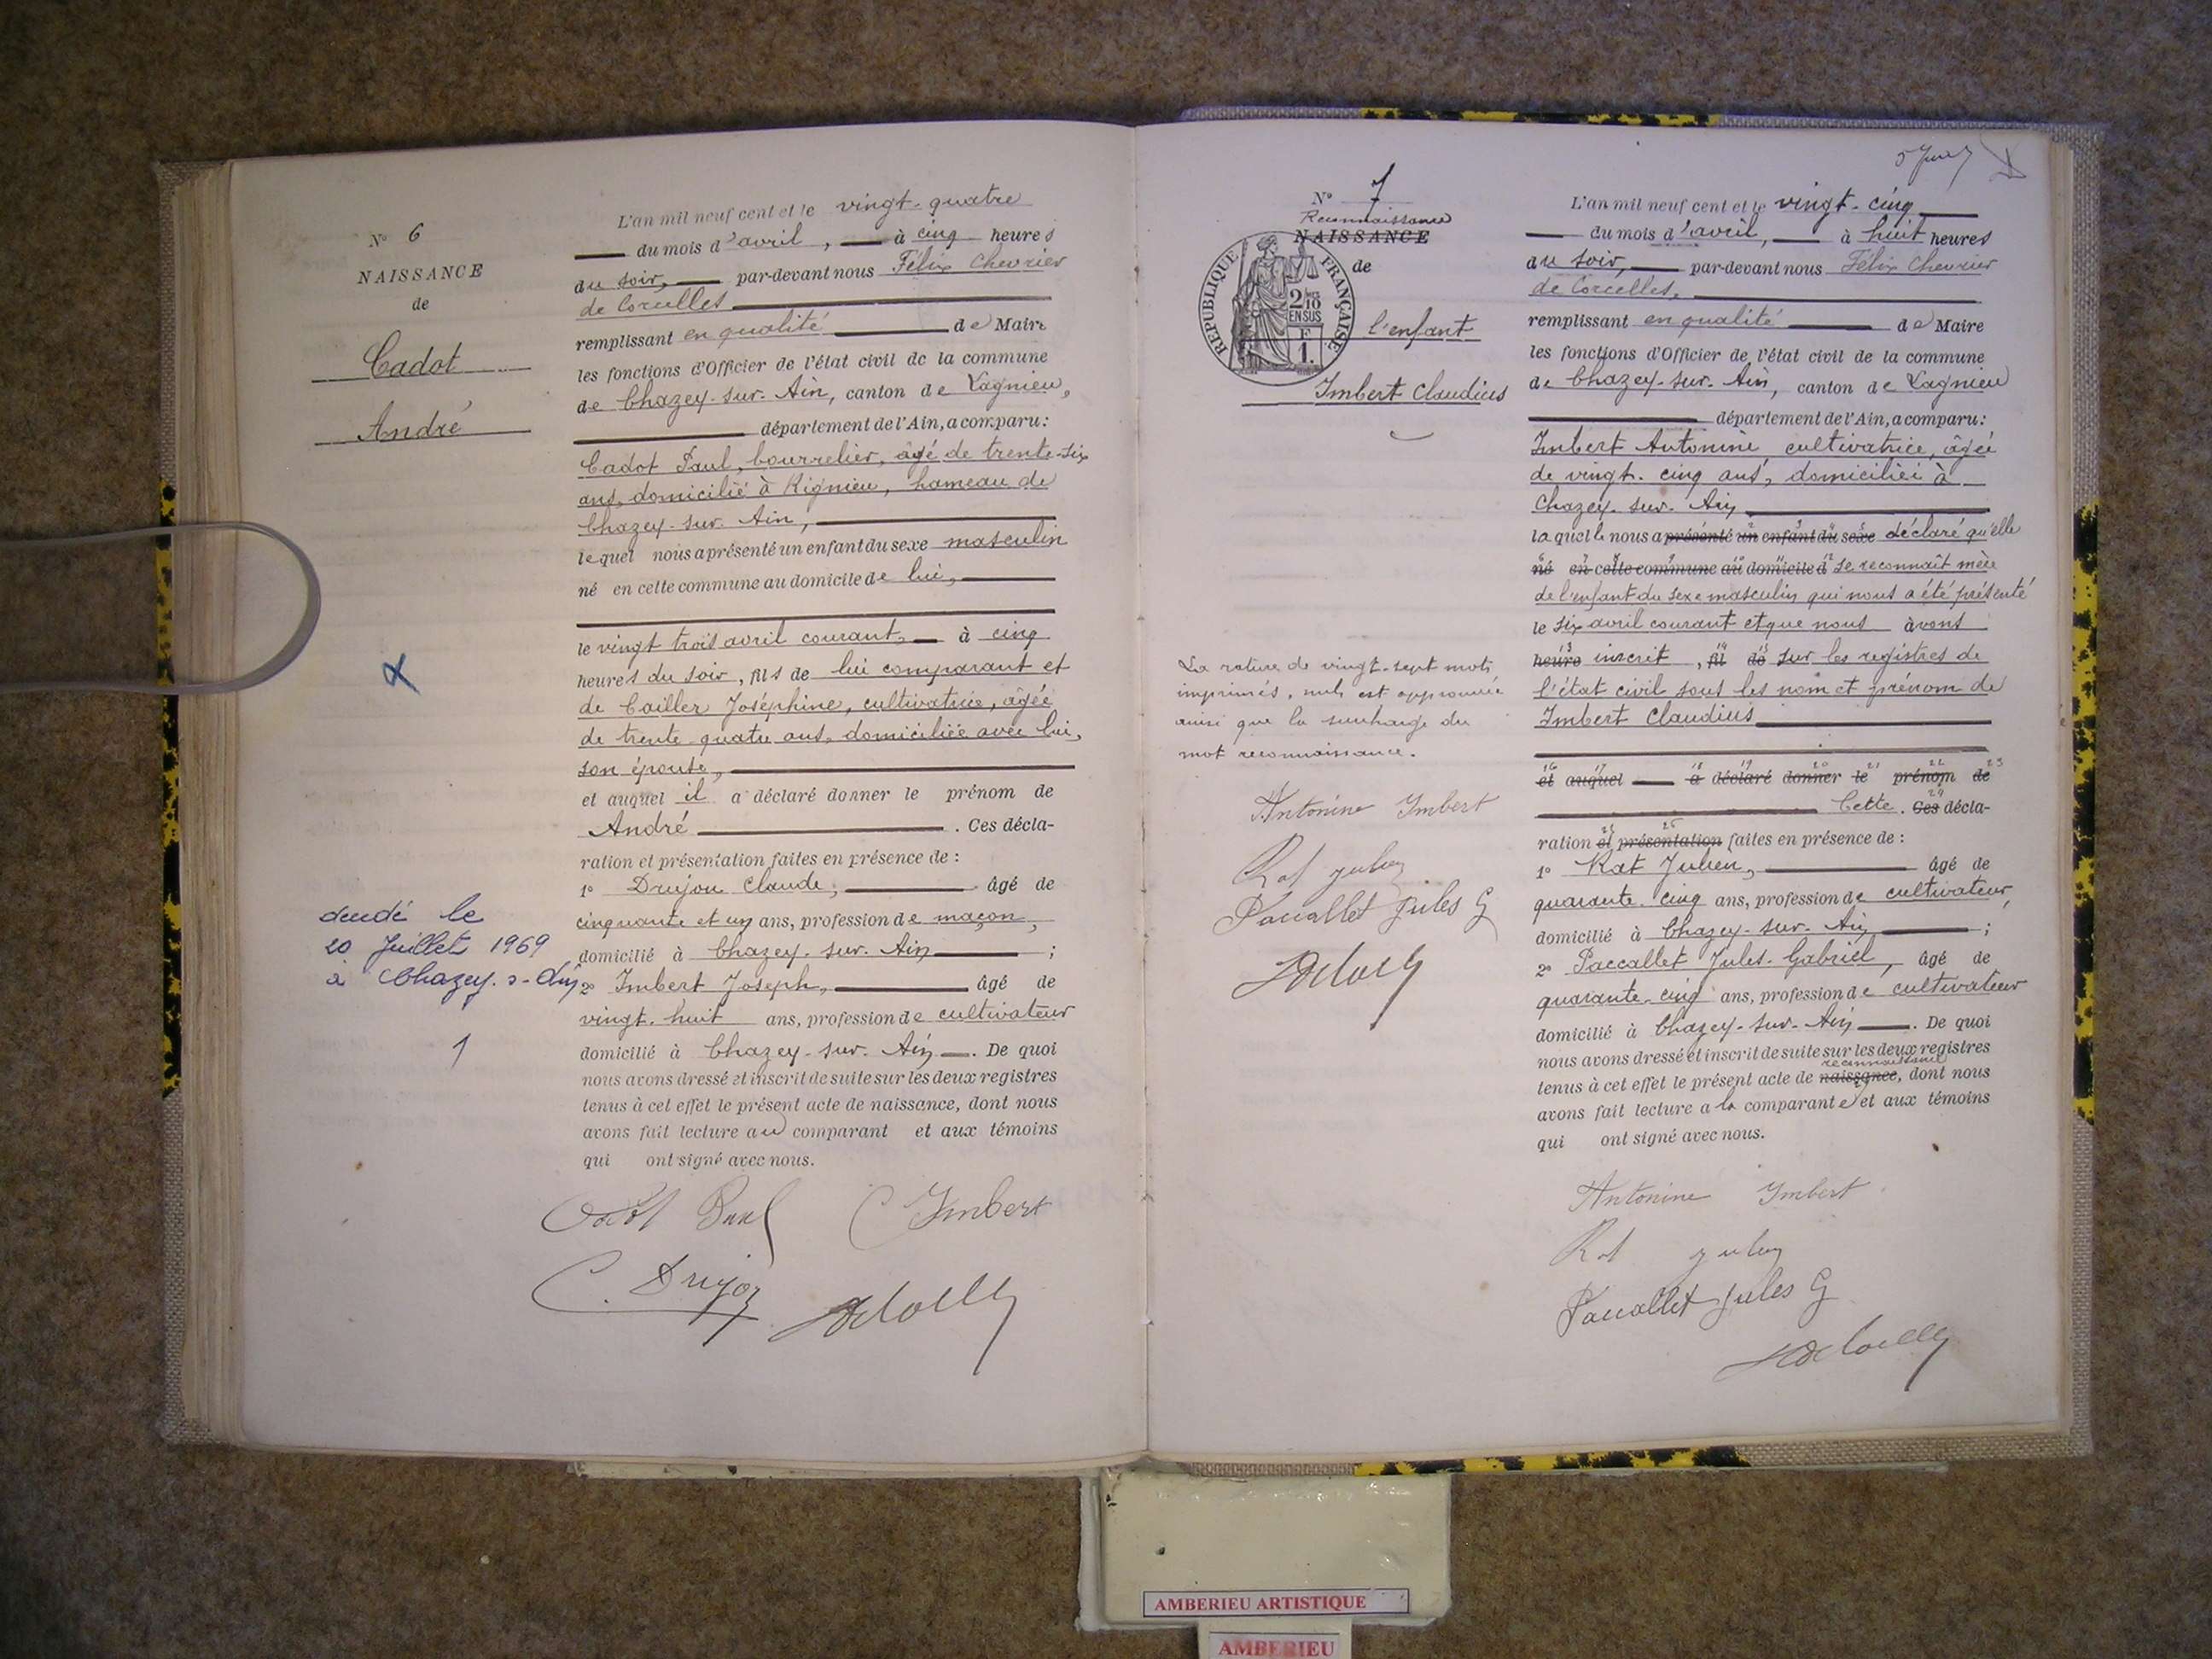 N° 6
NAISSANCE
de
Cadot
André
décédé le
20 Juillet 1969
à Chazey-s-Ain
1
L'an mil neuf cent et le vingt-quatre
du mois d'avril, à cinq heures
du soir, par-devant nous Félix Chevrier
de Corcelles
remplissant en qualité de Maire
les fonctions d'Officier de l'état civil de la commune
de Chazey-sur-Ain, canton de Lagnieu,
département de l'Ain, a comparu:
Cadot Paul, bourrelier, âgé de trente-six
ans, domicilié à Rignieu, hameau de
Chazey-sur-Ain,
lequel nous a présenté un enfant du sexe masculin
né en cette commune au domicile de lui,
le vingt trois avril courant, à cinq
heures du soir, fils de lui comparant et
de Cailler Joséphine, cultivatrice, âgée
de trente quatre ans, domiciliée avec lui,
son épouse,
et auquel il a déclaré donner le prénom de
André . Ces décla-
ration et présentation faites en présence de :
1° Drujon Claude, âgé de
cinquante et un ans, profession de maçon,
domicilié à Chazey-sur-Ain ;
2° Imbert Joseph, âgé de
vingt-huit ans, profession de cultivateur
domicilié à Chazey-sur-Ain . De quoi
nous avons dressé et inscrit de suite sur les deux registres
tenus à cet effet le présent acte de naissance, dont nous
avons fait lecture au comparant et aux témoins
qui ont signé avec nous.
Cadot Paul Imbert
C. Drujon
5
N° 7
Reconnaissance
NAISSANCE
de
RÉPUBLIQUE FRANÇAISE
2/10
EN SUS
F
1.
l'enfant
Imbert Claudius
La rature de vingt-sept mots
imprimés, nuls est approuvée
ainsi que la surcharge du
mot reconnaissance.
Antonine Imbert
Rat Julien
Paccallet Jules G
L'an mil neuf cent et le vingt-cinq
du mois d'avril, à huit heures
du soir, par-devant nous Félix Chevrier
de Corcelles,
remplissant en qualité de Maire
les fonctions d'Officier de l'état civil de la commune
de Chazey-sur-Ain, canton de Lagnieu
département de l'Ain, a comparu:
Imbert Antonine cultivatrice, âgée
de vingt-cinq ans, domiciliée à
Chazey-sur-Ain
laquelle nous a présenté un enfant du sexe déclaré qu'elle
né en cette commune au domicile d se reconnaît mère
de l'enfant du sexe masculin qui nous a été présenté
le six avril courant et que nous avons
heure inscrit, fil de sur les registres de
l'état civil sous les nom et prénom de
Imbert Claudius
et auquel a déclaré donner le prénom de
Cette . Ces décla-
ration et présentation faites en présence de :
1° Rat Julien, âgé de
quarante-cinq ans, profession de cultivateur,
domicilié à Chazey-sur-Ain ;
2° Paccallet Jules-Gabriel, âgé de
quarante-cinq ans, profession de cultivateur
domicilié à Chazey-sur-Ain . De quoi
nous avons dressé et inscrit de suite sur les deux registres
reconnaissance
tenus à cet effet le présent acte de naissance, dont nous
avons fait lecture a la comparante et aux témoins
qui ont signé avec nous.
Antonine Imbert
Rat Julien
Paccallet Jules G
AMBERIEU ARTISTIQUE
AMBERIEU